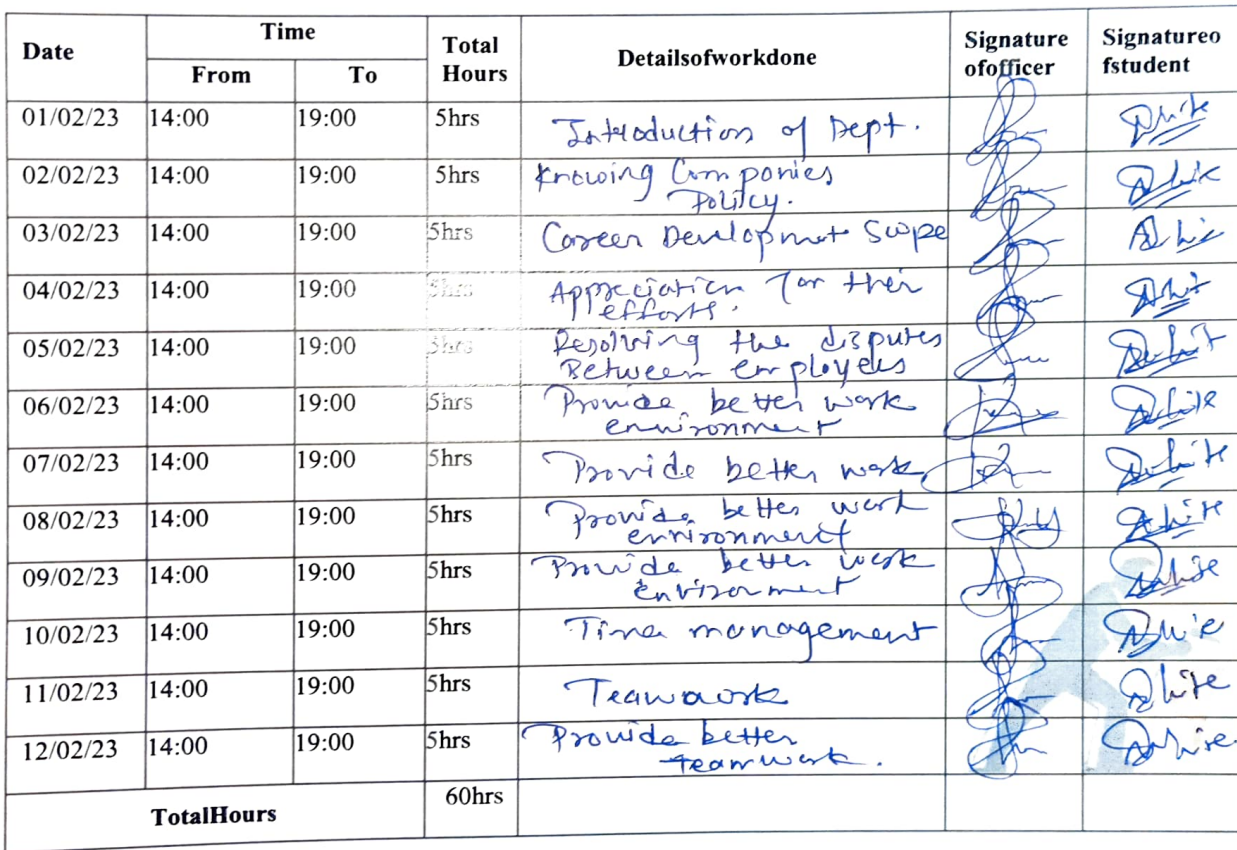 Date Time Total Hours Detailsofworkdone Signature ofofficer Signatureo fstudent
From To
01/02/23 14:00 19:00 5hrs Introduction of Dept.
02/02/23 14:00 19:00 5hrs Knowing Componies
Policy.
03/02/23 14:00 19:00 5hrs Career Development Scope
04/02/23 14:00 19:00 5hrs Appreciation for their
efforts.
05/02/23 14:00 19:00 5hrs Resolving the disputes
Between employees
06/02/23 14:00 19:00 5hrs Provide better work
environment
07/02/23 14:00 19:00 5hrs Provide better work
08/02/23 14:00 19:00 5hrs Provide better work
environment
09/02/23 14:00 19:00 5hrs Provide better work
environment
10/02/23 14:00 19:00 5hrs Time management
11/02/23 14:00 19:00 5hrs Teamwork
12/02/23 14:00 19:00 5hrs Provide better
teamwork.
TotalHours 60hrs